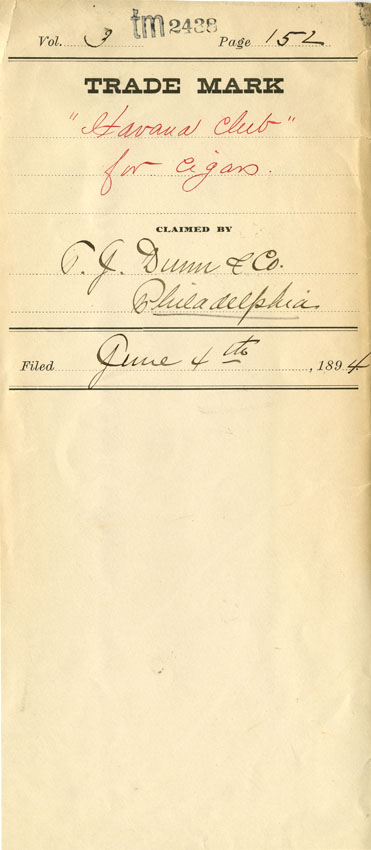 tm 2438
Vol. 3 Page 152
TRADE MARK
"Havana Club"
for Cigars.
CLAIMED BY
T. J. Dunn & Co.
Philadelphia
Filed June 4th, 1894